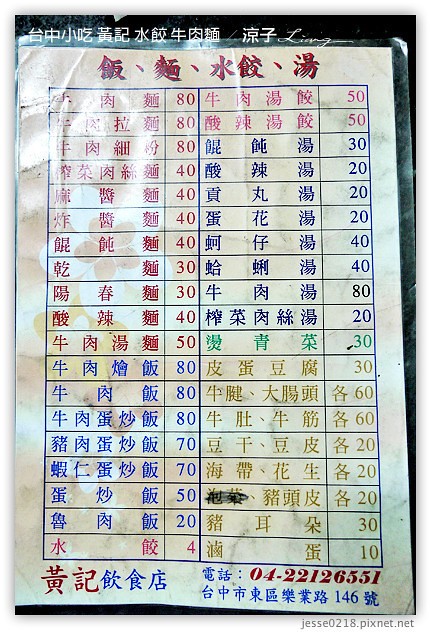 台中小吃 黃記 水餃 牛肉麵 / 涼子 Liang
飯、麵、水餃、湯
牛肉麵 80 牛肉湯餃 50
牛肉拉麵 80 酸辣湯餃 50
牛肉細粉 80 餛飩湯 30
榨菜肉絲麵 40 酸辣湯 20
麻醬麵 40 貢丸湯 20
炸醬麵 40 蛋花湯 20
餛飩麵 40 蚵仔湯 40
乾麵 30 蛤蜊湯 40
陽春麵 30 牛肉湯 80
酸辣麵 40 榨菜肉絲湯 20
牛肉湯麵 50 燙青菜 30
牛肉燴飯 80 皮蛋豆腐 30
牛肉飯 80 牛腱、大腸頭 各60
牛肉蛋炒飯 80 牛肚、牛筋 各60
豬肉蛋炒飯 70 豆干、豆皮 各20
蝦仁蛋炒飯 70 海帶、花生 各20
蛋炒飯 50 、豬頭皮 各20
魯肉飯 20 豬耳朵 30
水餃 4 滷蛋 10
黃記飲食店 電話：04-22126551
台中市東區樂業路146號
jesse0218.pixnet.net